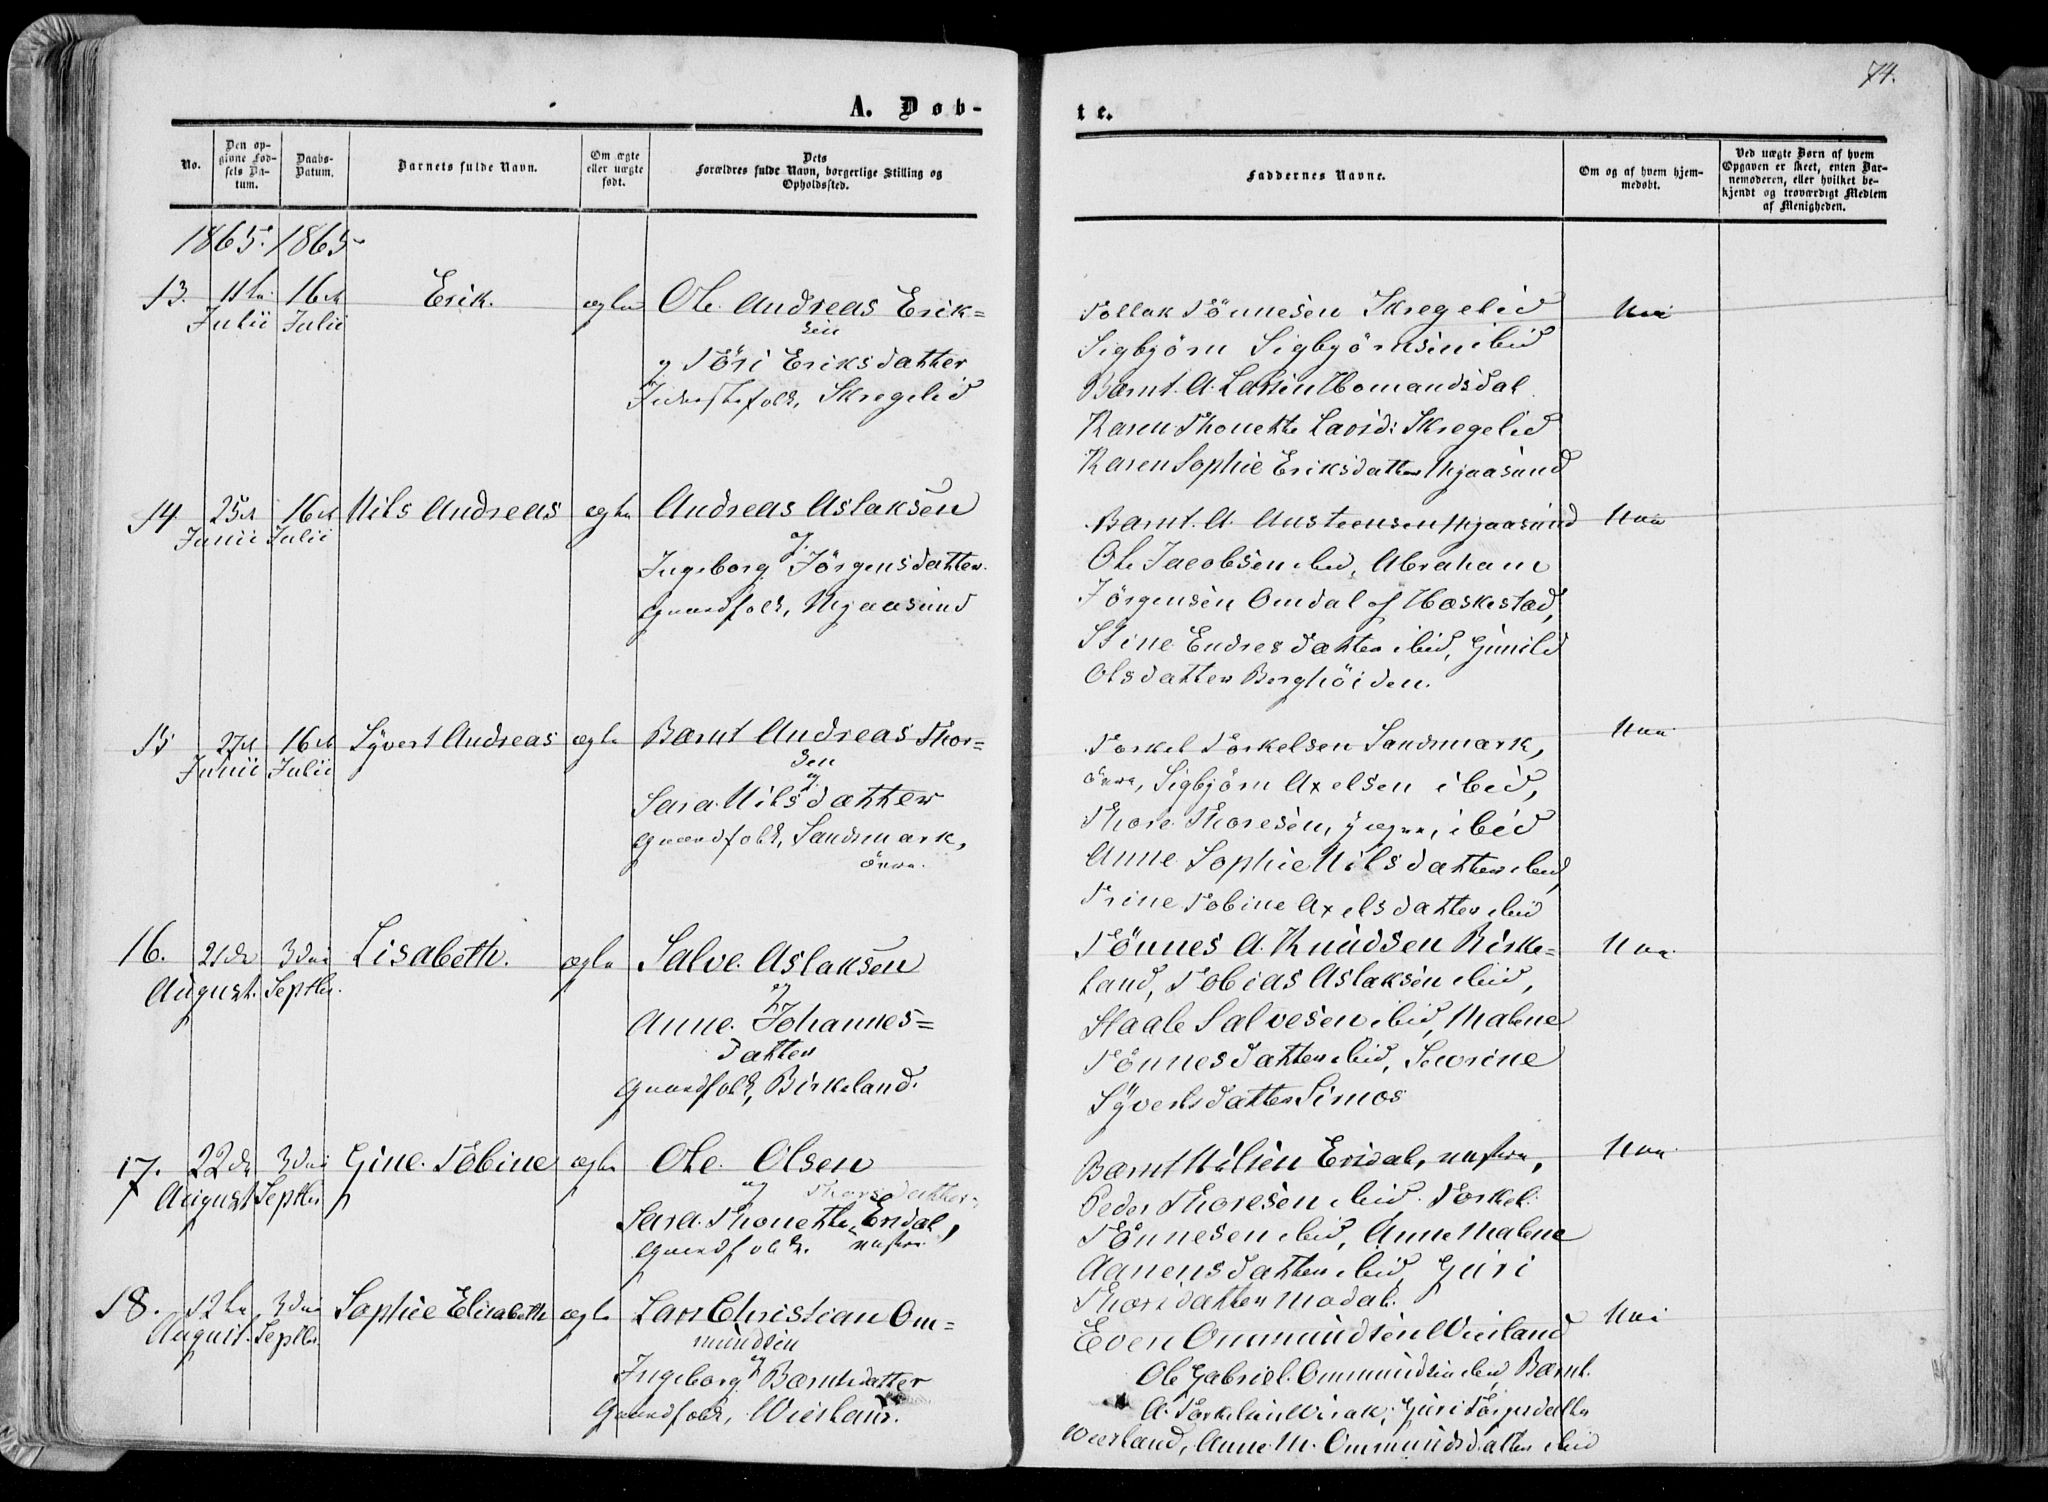 74.
A. Døb-
te.
No.
Den op-
givne Fød-
sels Da-
tum.
Daabs-
Datum.
Barnets fulde Navn.
Om ægte
eller uægte
født.
Dets
Forældres fulde Navn, borgerlige Stilling og
Opholdssted.
Faddernes Navne.
Om og af hvem hjem-
medøbt.
Ved uægte Børn af hvem
Opgaven er skeet, enten Bar-
nemoderen, eller hvilket be-
kjendt og troværdigt Medlem
af Menigheden.
1865. 1865
13. 11te 16de Erik. ægte Ole Andreas Erik=
Julii Julii sen
og Töri Eriksdatter
Inderstefolk, Skregelid
Tollak Tönnesen Skregelid Nei
Sigbjörn Sigbjörnsen ibid
Bernt A. Larsen Homandsdal
Karen Thonette Larsd: Skregelid
Karen Sophie Eriksdatter Mjaasund
14 25de 16de Nils Andreas ægte Andreas Aslaksen
Junii Julii og
Ingeborg Jörgensdatter
Gaardfolk, Mjaasund
Bernt A. Austeensen Mjaasund Nei
Ole Jacobsen ibid, Abraham
Jörgensen Omdal af Heskestad,
Stine Endresdatter ibid, Gunild
Olsdatter Berghöiden.
15 27de 16de Syvert Andreas ægte Bernt Andreas Thor=
Junii Julii sen
og
Sara Nilsdatter
Gaardfolk, Sandsmark,
övre.
Torkel Torkelsen Sandsmark, Nei
övre, Sigbjörn Axelsen ibid,
Thore Thoresen, yngre, ibid
Anne Sophie Nilsdatter ibid,
Trine Tobine Axelsdatter ibid
16. 21de 3die Lisabeth. ægte Salve Aslaksen
August. Septbr. og
Anne Johannes=
datter
Gaardfolk, Birkeland.
Tönnes A. Knudsen Birke= Nei
land, Tobias Aslaksen ibid,
Staale Salvesen ibid, Malene
Tönnesdatter ibid, Severine
Syvertsdatter Simos
17. 22de 3die Gine Tobine ægte Ole Olsen
August Septbr og Thorsdatter
Sara Thonette, Ersdal,
Gaardfolk. nedre
Bernt Nilsen Ersdal, nedre, Nei
Peder Thoresen ibid. Torkel
Tönnesen ibid, Anne Malene
Aanensdatter ibid, Guri
Thorsdatter Modal.
18. 12te 3die Sophie Elisabeth ægte Lars Christian Om=
August. Septbr. mundsen
og
Ingeborg Berntsdatter
Gaardfolk, Wiersland.
Even Ommundsen Wiersland Nei
Ole Gabriel Ommundsen ibid, Bernt
A. Torkelsen Virak, Guri Törgersdatter
Wiersland, Anne M. Ommundsdatter ibid